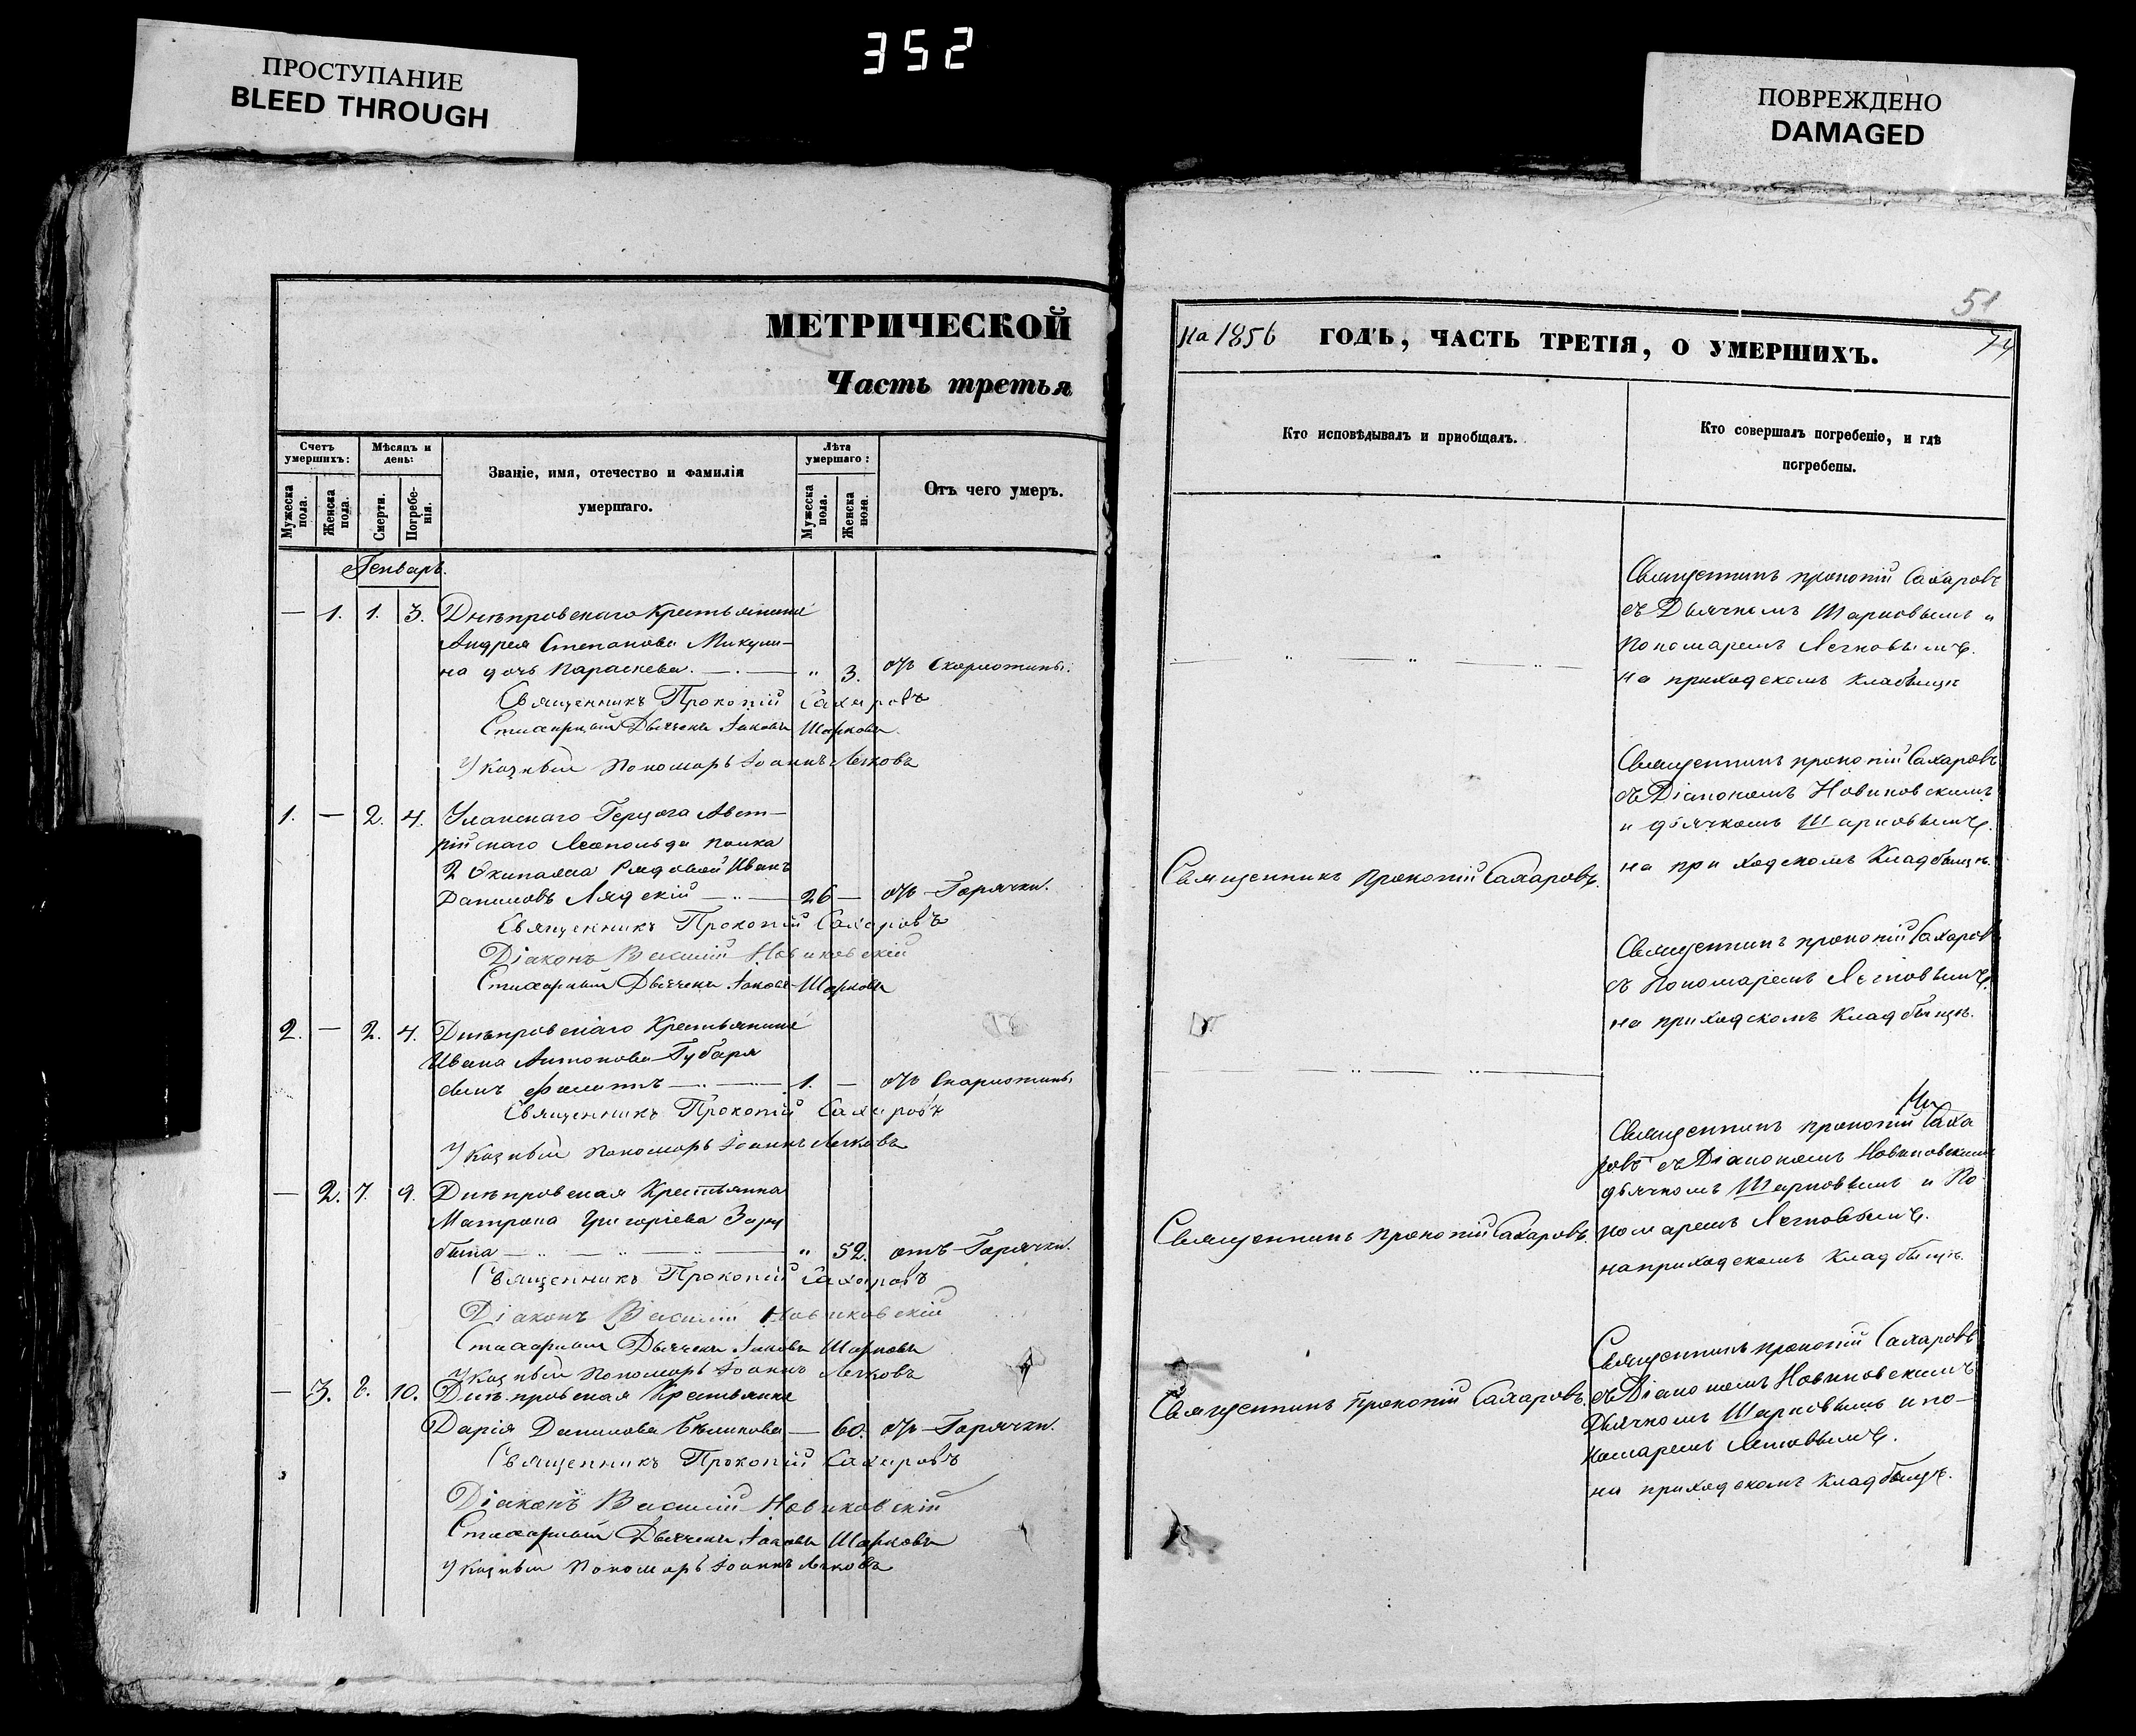 352
ПРОСТУПАНИЕ
BLEED THROUGH
ПОВРЕЖДЕНО
DAMAGED
МЕТРИЧЕСКОЙ
Часть третья
Счетъ умершихъ:
Мѣсяцъ и день:
Званіе, имя, отечество и фамилія
умершаго.
Лѣта умершаго:
Отъ чего умеръ.
Мужеска пола.
Женска пола.
Смерти.
Погребенія.
Мужеска пола.
Женска пола.
Генварь.
— 1. 1. 3. Днѣпровскаго Крестьянина
Андрея Степанова Микули-
на дочь Параскева. — " 3. отъ Скарлотины.
Священникъ Прокопій Сахаровъ
Стихарный Дьячекъ Іаковъ Шарковъ
Указный Пономарь Іоаннъ Легковъ
1. — 2. 4. Уланскаго Герцога Авст-
рійскаго Леопольда полка
2 Эскипажа Рядовой Иванъ
Даниловъ Лядскій — 26 — отъ Горячки.
Священникъ Прокопій Сахаровъ
Діаконъ Василій Новиковскій
Стихарный Дьячекъ Іаковъ Шарковъ
2. — 2. 4. Днѣпровскаго Крестьянина
Ивана Антонова Губаря
сынъ Филиппъ — 1. — отъ Скарлотины,
Священникъ Прокопій Сахаровъ
Указный Пономарь Іоаннъ Легковъ
— 2. 7. 9. Днѣпровская Крестьянка
Матрона Григоріева
— " 52. отъ Горячки.
Священникъ Прокопій Сахаровъ
Діаконъ Василій Новиковскій
Стихарный Дьячекъ Іаковъ Шарковъ
Указный Пономарь Іоаннъ Легковъ
— 3. 8. 10. Днѣпровская Крестьянка
Дарія Данилова Бѣликова — 60. отъ Горячки.
Священникъ Прокопій Сахаровъ
Діаконъ Василій Новиковскій
Стихарный Дьячекъ Іаковъ Шарковъ
Указный Пономарь Іоаннъ Легковъ
51
На 1856 ГОДЪ, ЧАСТЬ ТРЕТІЯ, О УМЕРШИХЪ.
74
Кто исповѣдывалъ и пріобщалъ.
Кто совершалъ погребеніе, и гдѣ
погребены.
Священникъ Прокопій Сахаровъ
съ Дьячкомъ Шарковымъ и
Пономаремъ Легковымъ.
на приходскомъ кладбищѣ
Священникъ Прокопій Сахаровъ
съ Діакономъ Новиковскимъ
и дьячкомъ Шарковымъ.
на приходскомъ Кладбищѣ.
Священникъ Прокопій Сахаровъ.
Священникъ Прокопій Сахаровъ
съ Пономаремъ Легковымъ.
на приходскомъ Кладбищѣ.
Священникъ Прокопій Саха
ровъ съ Діакономъ Новиковскимъ
дьячкомъ Шарковымъ и По
номаремъ Легковымъ.
на приходскомъ Кладбищѣ.
Священникъ Прокопій Сахаровъ.
Священникъ Прокопій Сахаровъ
съ Діакономъ Новиковскимъ
Дьячкомъ Шарковымъ и по-
номаремъ Легковымъ.
на приходскомъ кладбищѣ.
Священникъ Прокопій Сахаровъ.